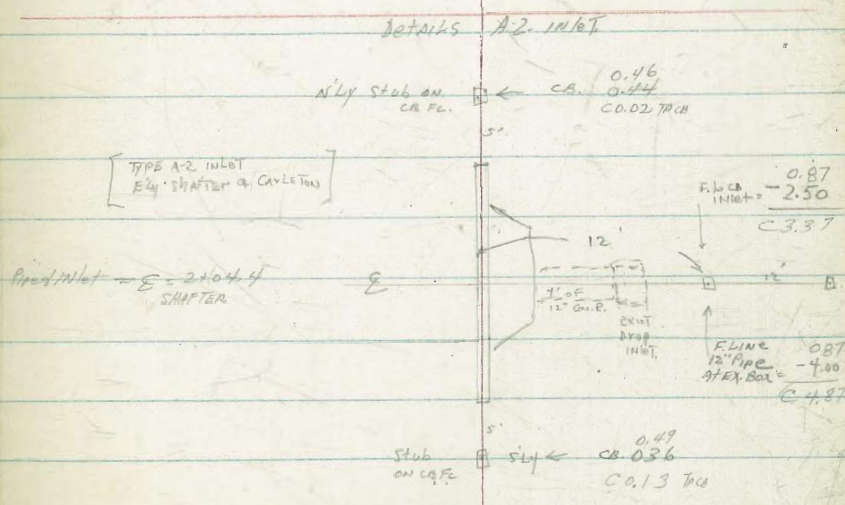 DETAILS A-2. INLET.
N'Ly Stub ON
CB FC.
← CB. 0.46
0.44
C 0.02 TPCB
5'
[TYPE A-2 INLET
E'ly SHAFTER @ CARLETON]
F.L @ CB
INLET =
0.87
- 2.50
C 3.37
12'
Pipe & INLET = ℄ = 2+04.4
SHAFTER
℄
4' OF
12" C.M.P.
EXIST
Drop
INLET.
12'
F.LINE
12" Pipe
At EX. BOX =
0.87
- 4.00
C 4.87
5'
Stub
ON CB FC
S'Ly ← CB. 0.49
0.36
C 0.13 TPCB